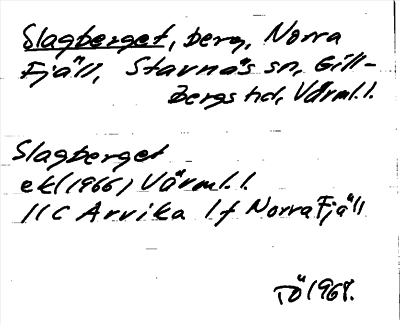 Slagberget, berg, Norra
Fjäll, Stavnäs sn, Gill-
bergs hd, Värml. l.
Slagberget
ek (1966) Värml. l.
11C Arvika 1f Norra Fjäll
TÖ 1968.